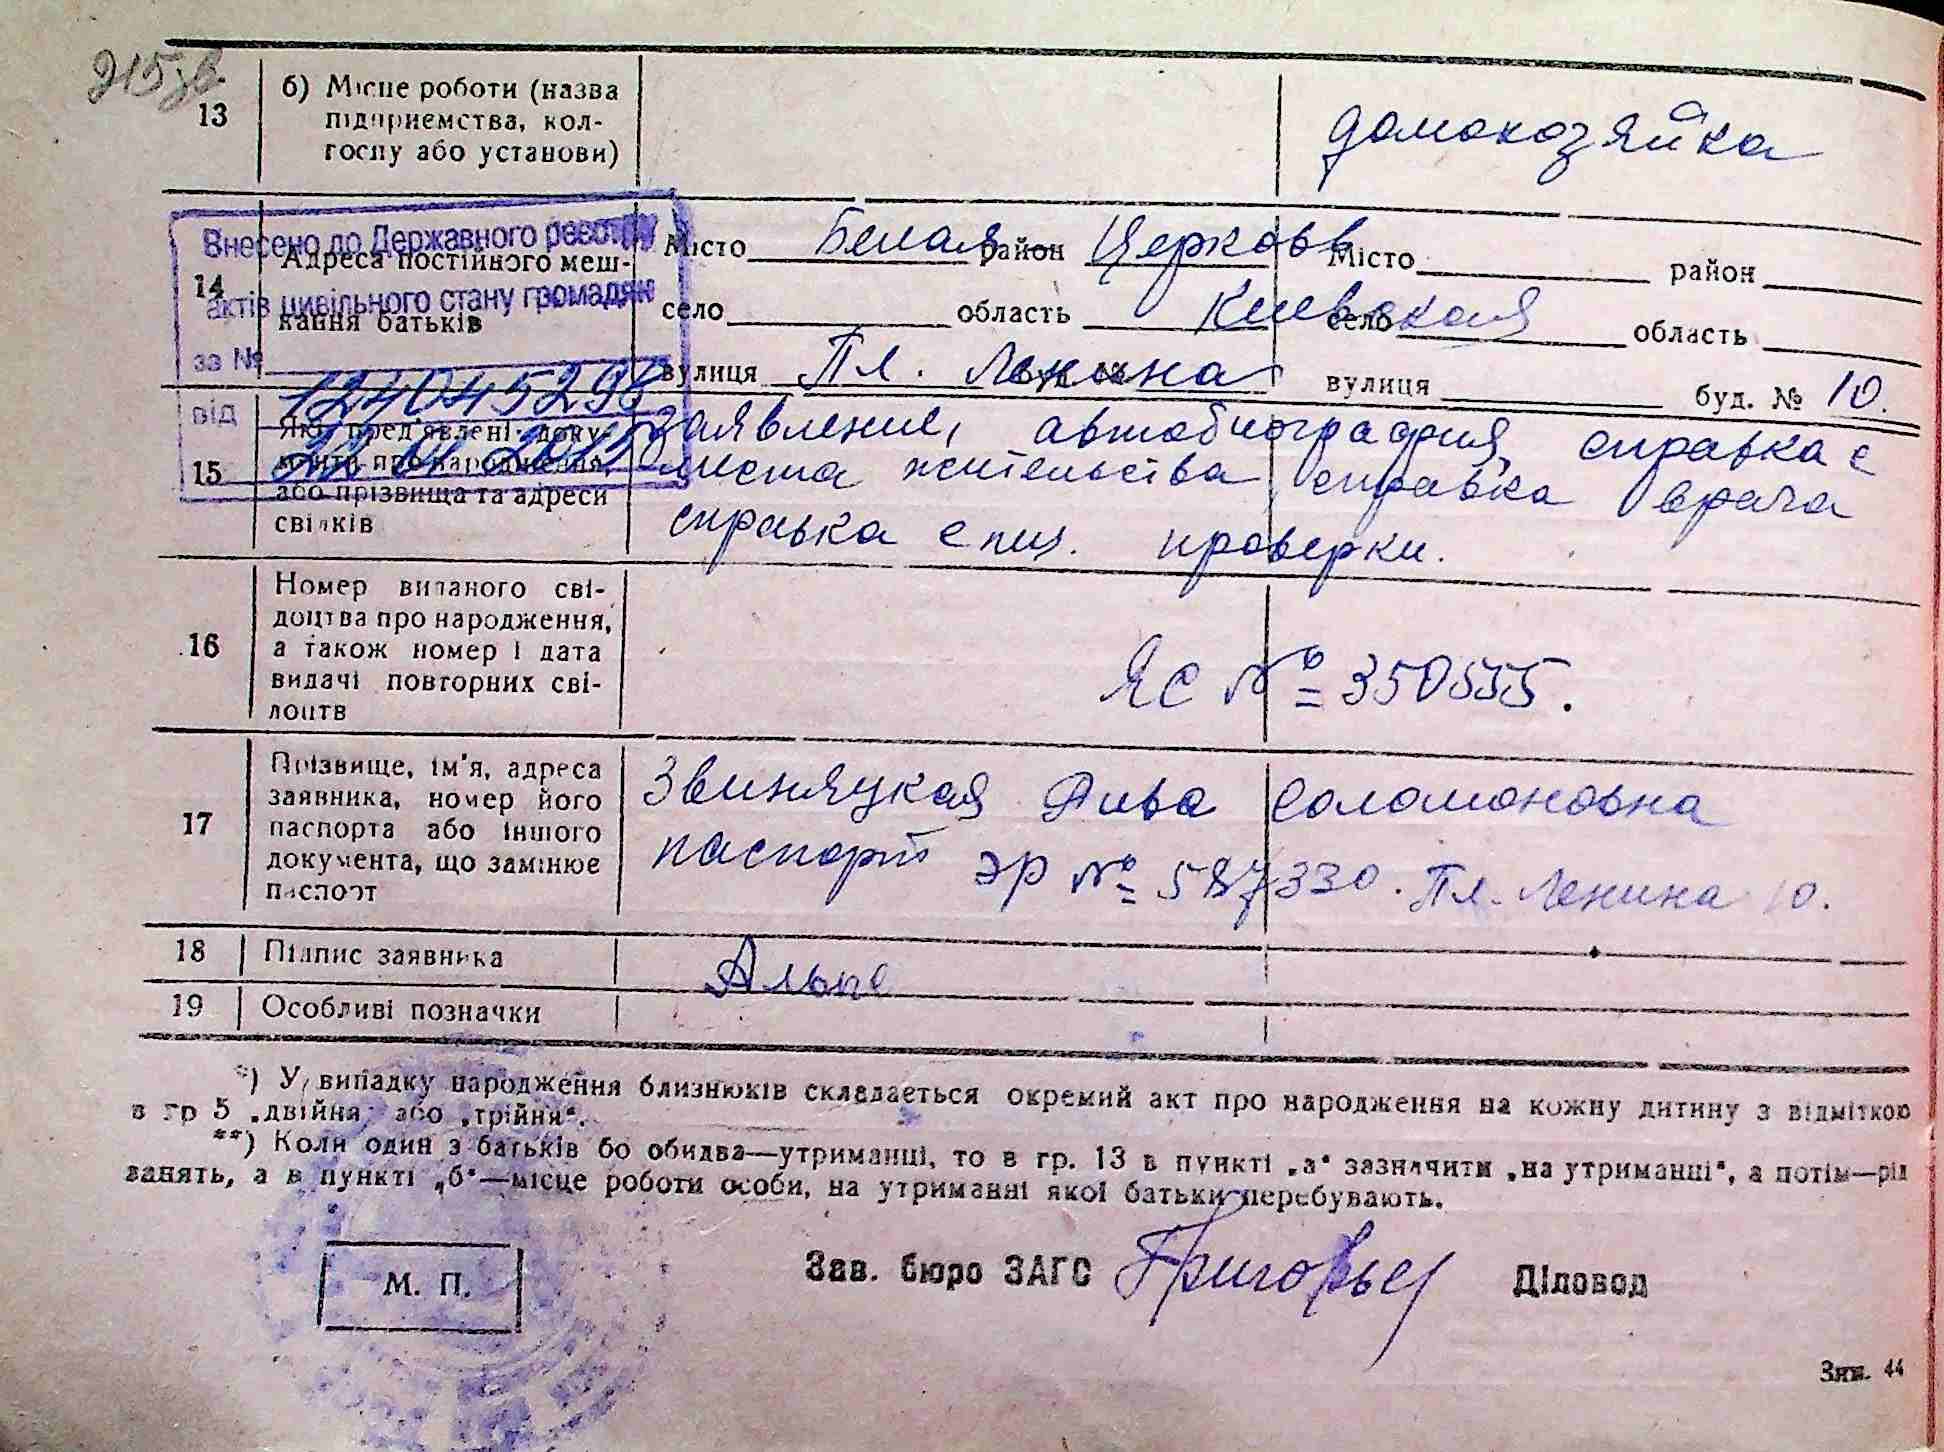 215зв.
13 б) Місце роботи (назва
підприємства, кол-
госпу або установи)
домохозяйка
Внесено до Державного реєстру
актів цивільного стану громадян
за № 124045296
від
14 Адреса постійного меш-
кання батьків
Місто Белая район Церковь Місто район
село область Киевская село область
вулиця Пл. Ленина буд. № вулиця буд. № 10.
15 Які пред'явлені доку-
менти про народження,
або прізвища та адреси
свідків
Заявление, автобиография, справка с
места жительства, справка врача
справка спец. проверки.
16 Номер виданого сві-
доцтва про народження,
а також номер і дата
видачі повторних сві-
доцтв
ЯС № 350555.
17 Прізвище, ім'я, адреса
заявника, номер його
паспорта або іншого
документа, що замінює
паспорт
Звиняцкая Рива Соломоновна
паспорт ЭР № 587330. Пл. Ленина 10.
18 Підпис заявника
19 Особливі позначки
*) У випадку народження близнюків складається окремий акт про народження на кожну дитину з відміткою
в гр 5 „двійня" або „трійня".
**) Коли один з батьків бо обидва—утриманці, то в гр. 13 в пункті „а" зазначити „на утриманні", а потім—рід
занять, а в пункті „б"—місце роботи особи, на утриманні якої батьки перебувають.
М. П.
Зав. бюро ЗАГС Діловод
Зям. 44